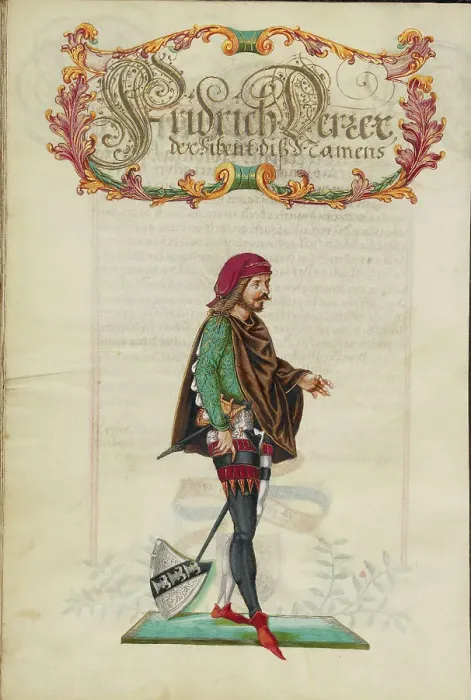 Fridrich Derrer.
der Sibent diß Namens